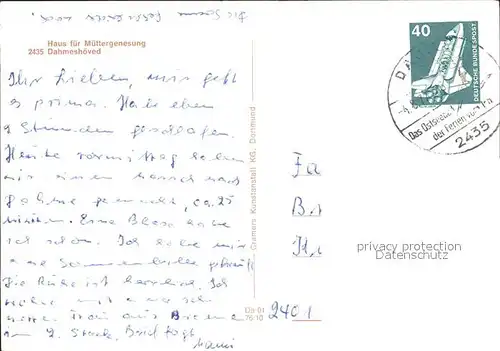 Die Sonne fehlt leider noch.
Haus für Müttergenesung
2435 Dahmeshöved
Ihr Lieben, mir geht
es prima. Habe eben
2 Stunden geschlafen.
Heute vormittag haben
wir einen Marsch nach
Dahme gemacht, ca. 25
Minuten. Eine Blase habe
ich schon. Ich habe mir
eine Sonnenbrille gekauft.
Die Ruhe ist herrlich. Ich
wohne mit einer
netten Frau aus Bremen
im 2. Stock.
Mami
Cramers Kunstanstalt KG, Dortmund
Da 01
76 10
40
DEUTSCHE BUNDESPOST
Das Ostseebad
der Ferien
2435
Fa
2401
privacy protection
Datenschutz